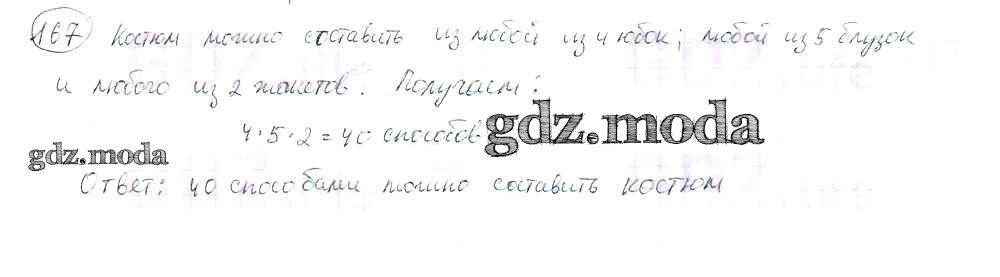 167 Костюм можно составить из любой из 4 юбок; любой из 5 блузок
и любого из 2 жакетов. Получаем:
4·5·2=40 способов gdz.moda
gdz.moda
Ответ: 40 способами можно составить костюм